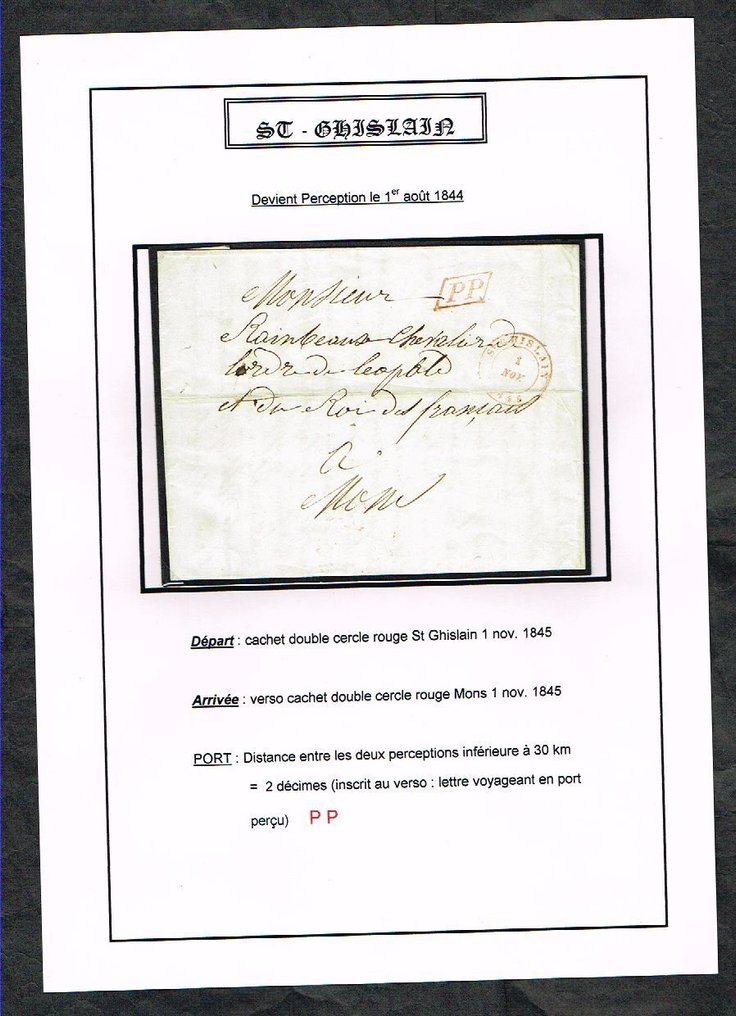 ST - GHISLAIN
Devient Perception le 1er août 1844
Monsieur
PP
Rainbeaux chevalier de
lordre de leopold
et du Roi des français
ST GHISLAIN
1
NOV.
a
Mons
Départ : cachet double cercle rouge St Ghislain 1 nov. 1845
Arrivée : verso cachet double cercle rouge Mons 1 nov. 1845
PORT : Distance entre les deux perceptions inférieure à 30 km
= 2 décimes (inscrit au verso : lettre voyageant en port
perçu) P P